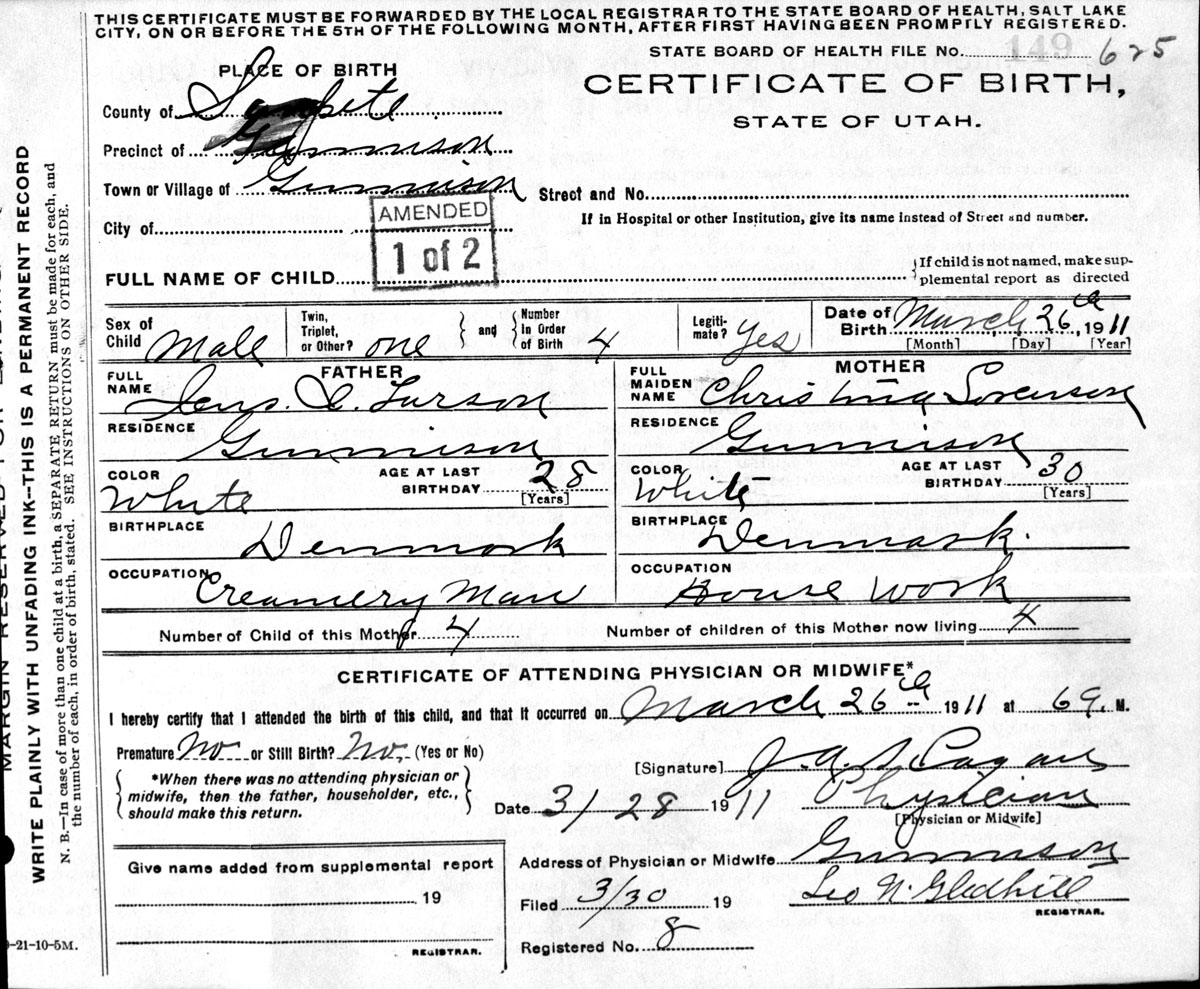 THIS CERTIFICATE MUST BE FORWARDED BY THE LOCAL REGISTRAR TO THE STATE BOARD OF HEALTH, SALT LAKE
CITY, ON OR BEFORE THE 5TH OF THE FOLLOWING MONTH, AFTER FIRST HAVING BEEN PROMPTLY REGISTERED.
STATE BOARD OF HEALTH FILE NO. 149 625
PLACE OF BIRTH
CERTIFICATE OF BIRTH,
STATE OF UTAH.
County of Sanpete
Precinct of Gunnison
Town or Village of Gunnison
Street and No.
City of
If in Hospital or other Institution, give its name instead of Street and number.
AMENDED
1 of 2
FULL NAME OF CHILD
If child is not named, make sup-
plemental report as directed
Sex of Child Male
Twin, Triplet, or Other? one
and Number In Order of Birth 4
Legiti-mate? Yes
Date of Birth March 26th, 1911
[Month] [Day] [Year]
FATHER
FULL NAME Jens. C. Larson
RESIDENCE Gunnison
COLOR White
AGE AT LAST BIRTHDAY 28
[Years]
BIRTHPLACE Denmark
OCCUPATION Creamery Man
MOTHER
FULL MAIDEN NAME Christina Sorenson
RESIDENCE Gunnison
COLOR White
AGE AT LAST BIRTHDAY 30
[Years]
BIRTHPLACE Denmark.
OCCUPATION House Work
Number of Child of this Mother 4
Number of children of this Mother now living 4
CERTIFICATE OF ATTENDING PHYSICIAN OR MIDWIFE*
I hereby certify that I attended the birth of this child, and that it occurred on March 26th 1911 at M.
Premature No or Still Birth? No, (Yes or No)
*When there was no attending physician or
midwife, then the father, householder, etc.,
should make this return.
[Signature]
Date 3/28 1911 Physician
[Physician or Midwife]
Give name added from supplemental report
19
REGISTRAR.
Address of Physician or Midwife Gunnison
Filed 3/30 19 Leo N. Gledhill
REGISTRAR.
Registered No. 8
WRITE PLAINLY WITH UNFADING INK--THIS IS A PERMANENT RECORD
N. B.—In case of more than one child at a birth, a SEPARATE RETURN must be made for each, and
the number of each, in order of birth, stated. SEE INSTRUCTIONS ON OTHER SIDE.
-21-10-5M.